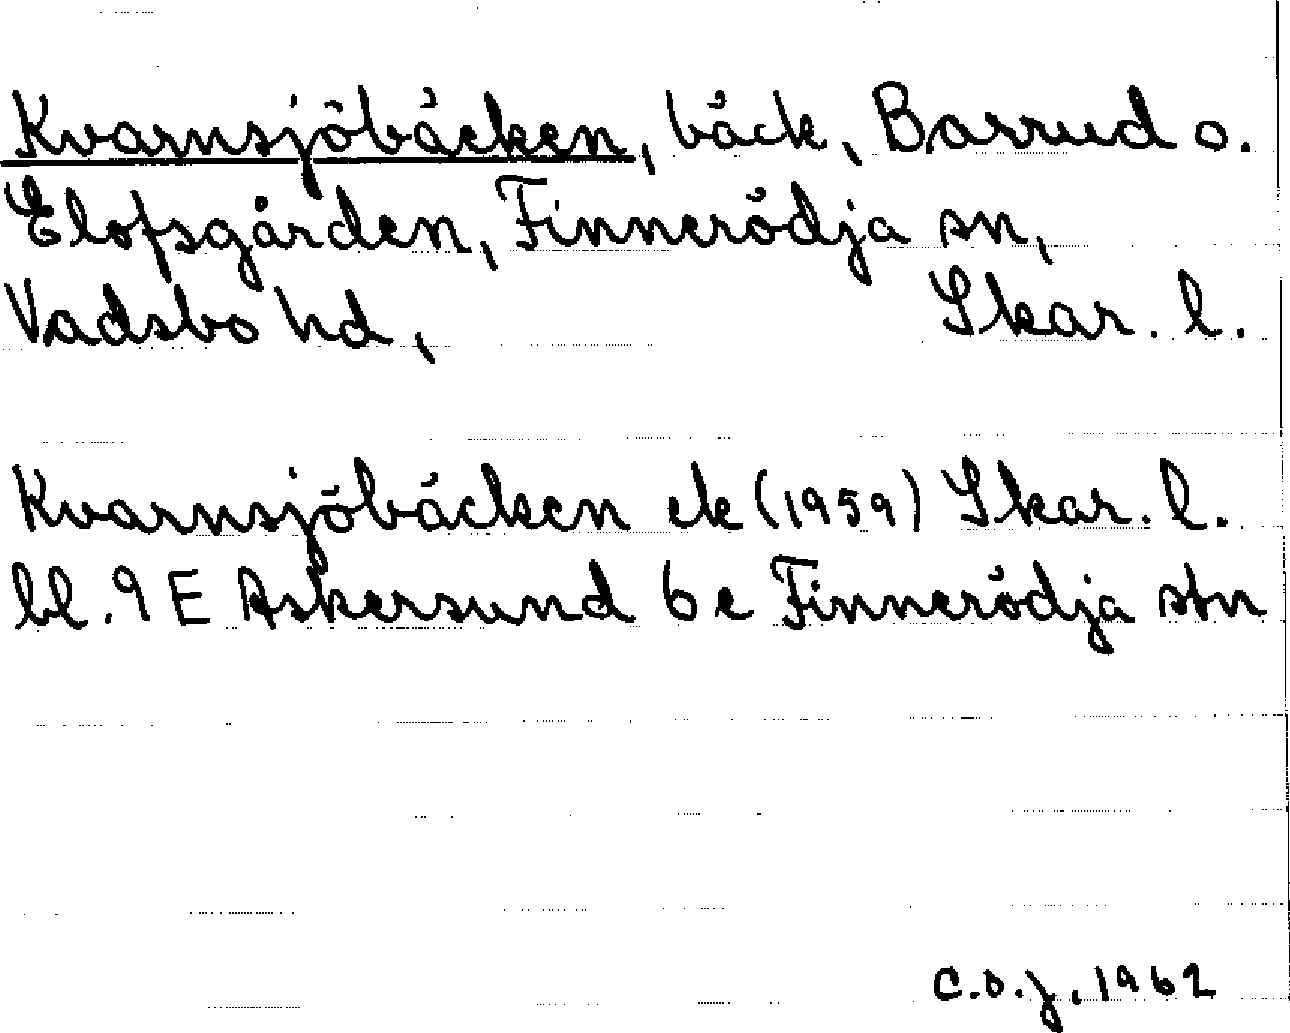 Kvarnsjöbäcken, bäck, Barrud o.
Elofsgården, Finnerödja sn,
Vadsbo hd, Skar. l.
Kvarnsjöbäcken ek (1959) Skar. l.
bl. 9 E Askersund 6 e Finnerödja stn
C.O.J. 1962